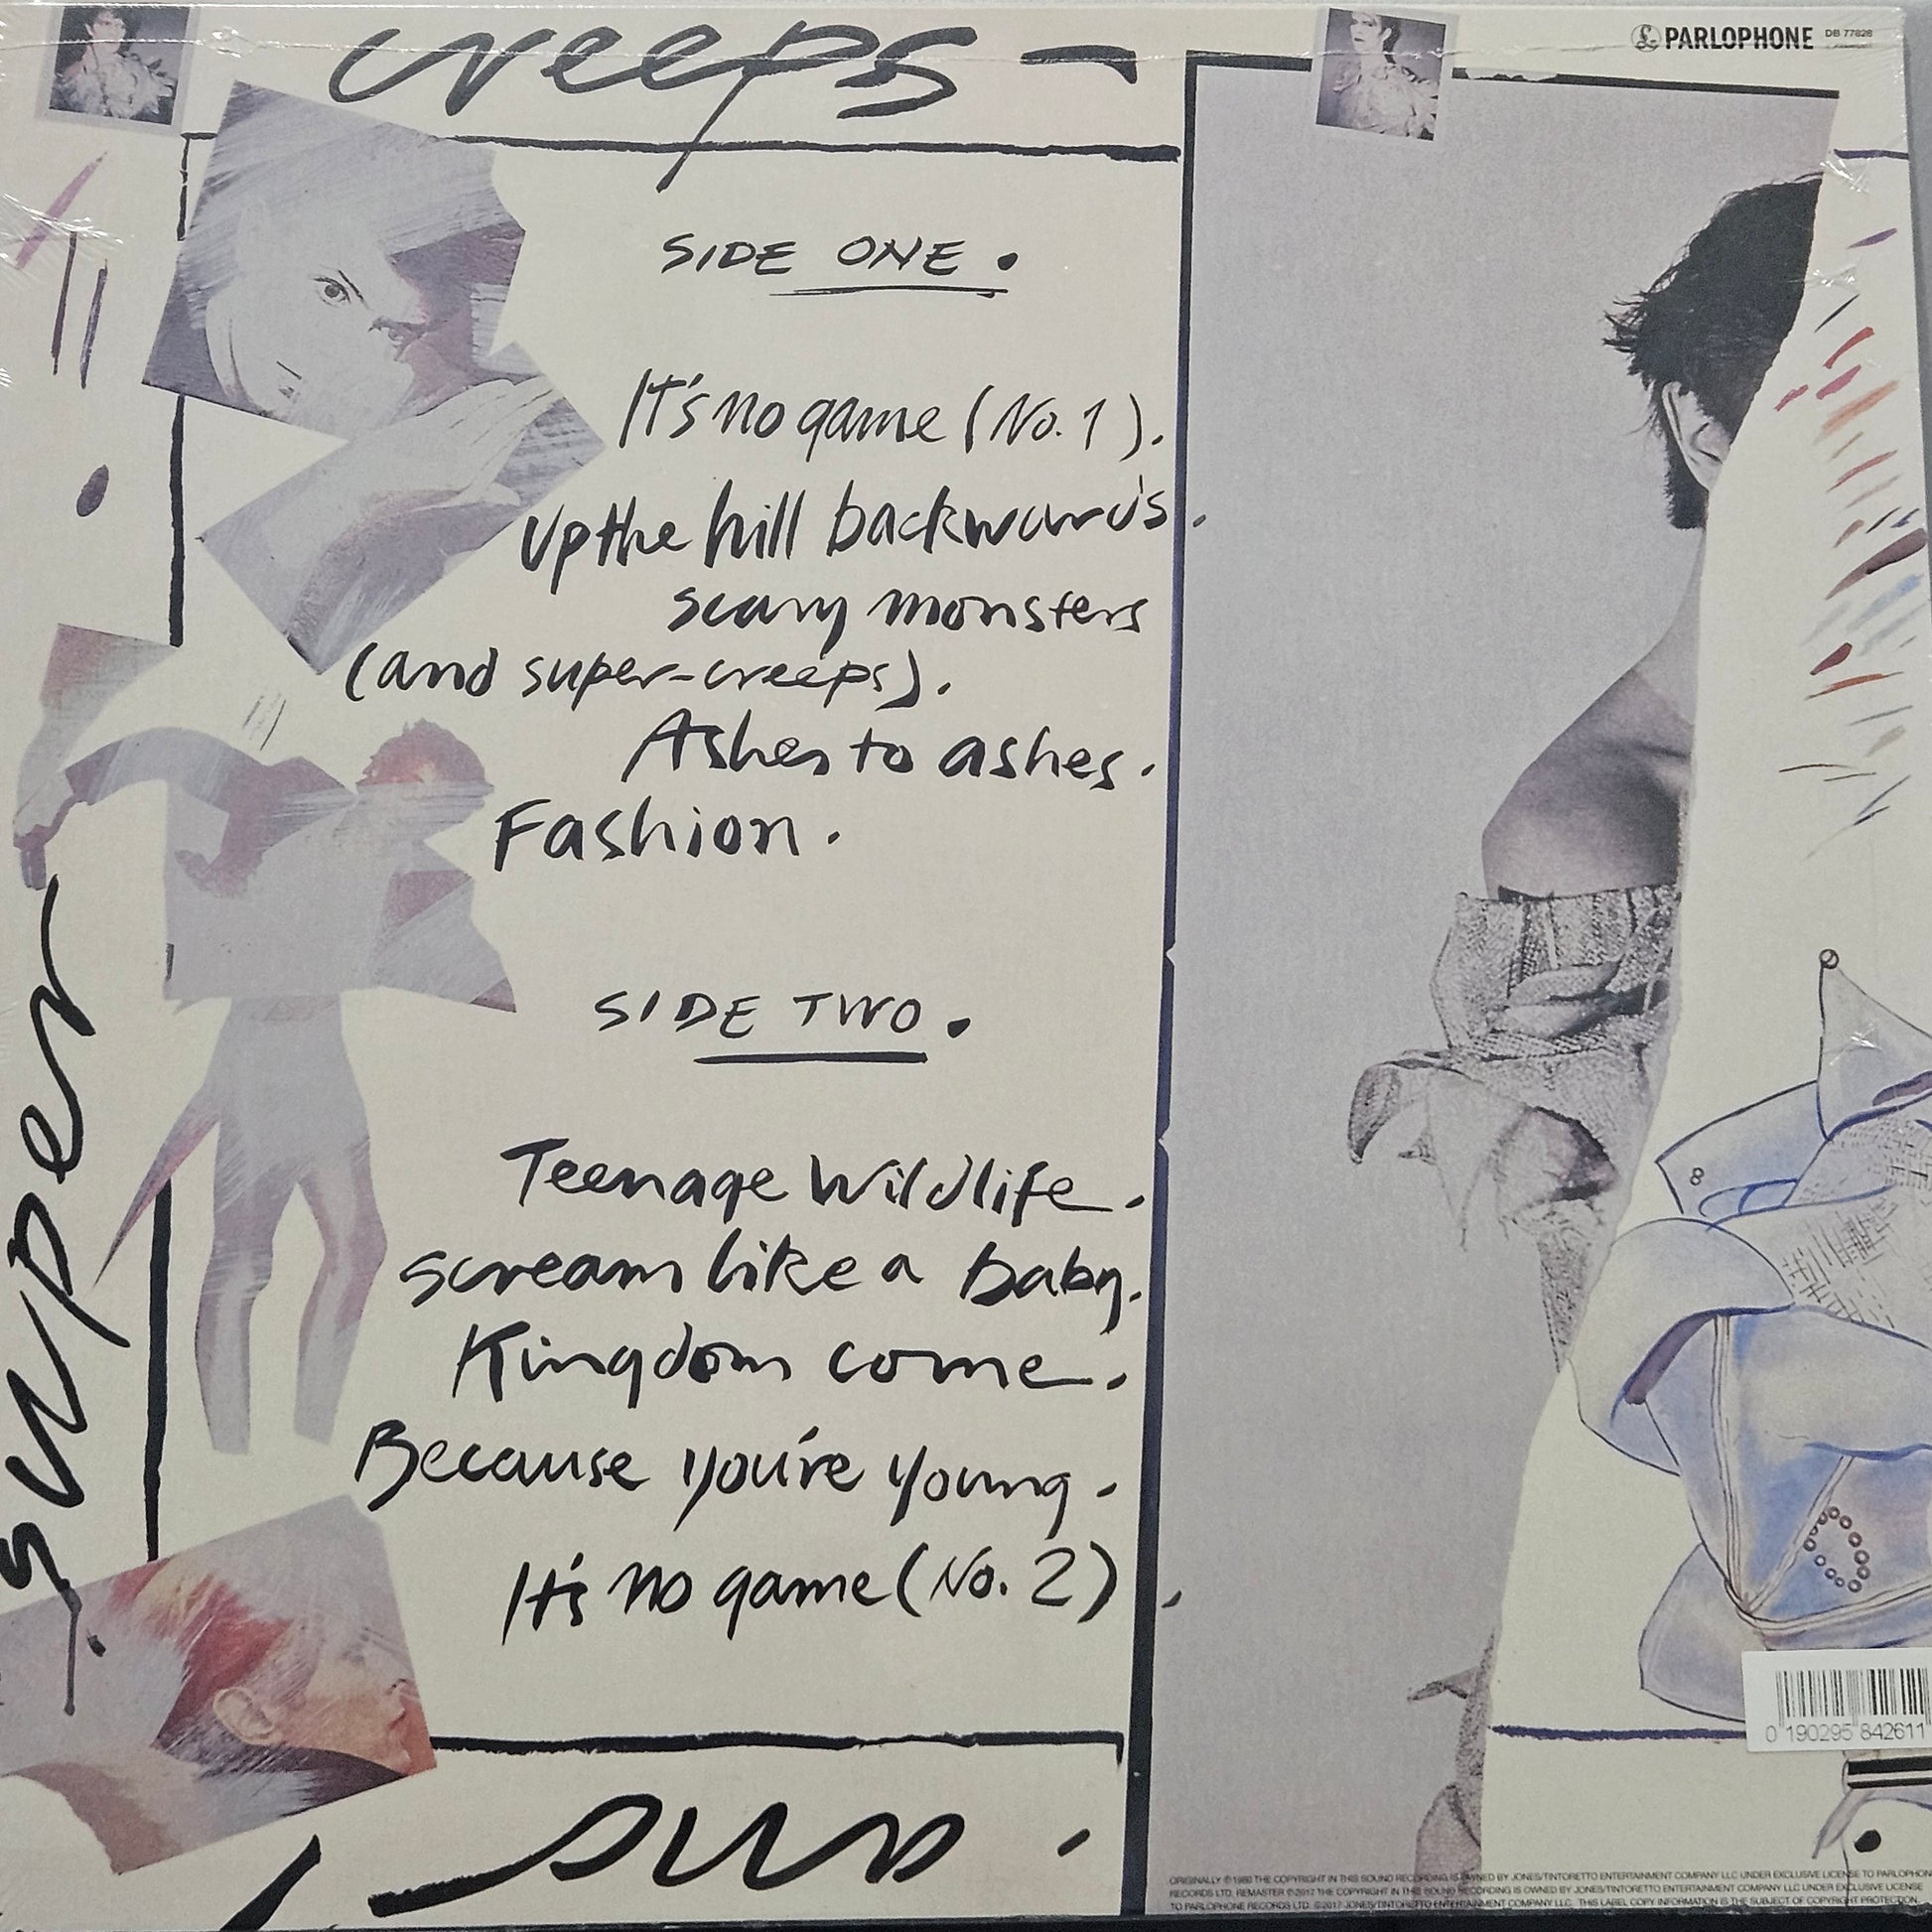 creeps -
PARLOPHONE
DB 77828
SIDE ONE.
It's no game (No. 1).
Up the hill backwards.
scary monsters
(and super-creeps).
Ashes to ashes.
Fashion.
super
SIDE TWO.
Teenage Wildlife.
scream like a baby.
Kingdom come.
Because you're young.
It's no game (No. 2).
8
0 190295 842611
ORIGINALLY ℗ 1980 THE COPYRIGHT IN THIS SOUND RECORDING IS OWNED BY JONES/TINTORETTO ENTERTAINMENT COMPANY LLC UNDER EXCLUSIVE LICENSE TO PARLOPHON
RECORDS LTD, REMASTER ℗ 2017 THE COPYRIGHT IN THIS SOUND RECORDING IS OWNED BY JONES/TINTORETTO ENTERTAINMENT COMPANY LLC UNDER EXCLUSIVE LICENSE
TO PARLOPHONE RECORDS LTD. © 2017 JONES/TINTORETTO ENTERTAINMENT COMPANY LLC. THIS LABEL COPY INFORMATION IS THE SUBJECT OF COPYRIGHT PROTECTION.